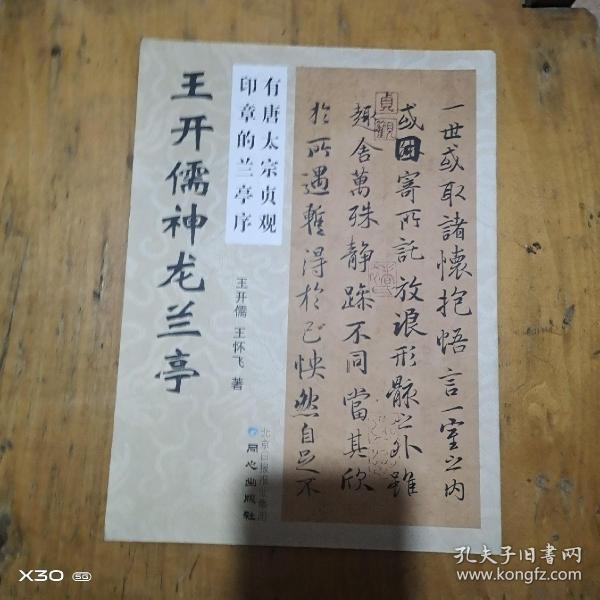 王开儒神龙兰亭
有唐太宗贞观
印章的兰亭序
王开儒 王怀飞 著
北京日报报业集团
同心出版社
一世或取諸懷抱悟言一室之内
或因寄所託放浪形骸之外雖
趣舍萬殊静躁不同當其欣
於所遇蹔得於己怏然自足不
貞觀
X30 5G
孔夫子旧书网
www.kongfz.com